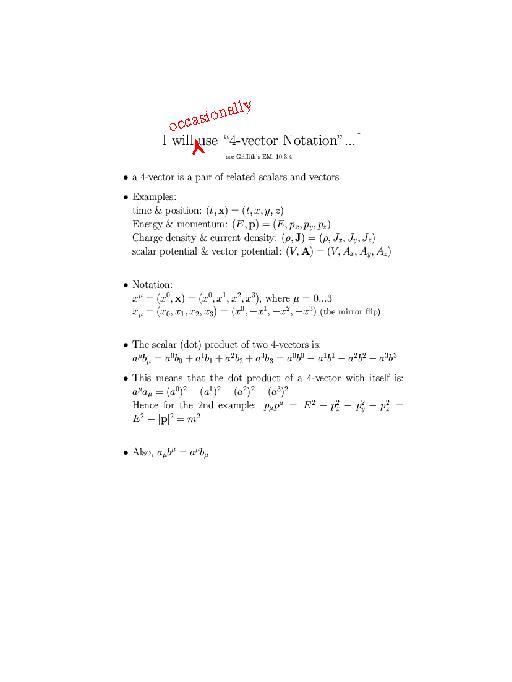 occasionally
I will use "4-vector Notation"...
see Griffith's EM. 10.3.4
• a 4-vector is a pair of related scalars and vectors
• Examples:
time & position: (t, x) = (t, x, y, z)
Energy & momentum: (E, p) = (E, pₓ, p_y, p_z)
Charge density & current density: (ρ, J) = (ρ, Jₓ, J_y, J_z)
scalar potential & vector potential: (V, A) = (V, Aₓ, A_y, A_z)
• Notation:
x^μ = (x⁰, x) = (x⁰, x¹, x², x³), where μ = 0...3
x_μ = (x₀, x₁, x₂, x₃) = (x⁰, −x¹, −x², −x³) (the mirror flip)
• The scalar (dot) product of two 4-vectors is:
a^μb_μ = a⁰b₀ + a¹b₁ + a²b₂ + a³b₃ = a⁰b⁰ − a¹b¹ − a²b² − a³b³
• This means that the dot product of a 4-vector with itself is:
a^μa_μ = (a⁰)² − (a¹)² − (a²)² − (a³)²
Hence for the 2nd example: p_μp^μ = E² − pₓ² − p_y² − p_z² =
E² − |p|² = m²
• Also, a_μb^μ = a^μb_μ